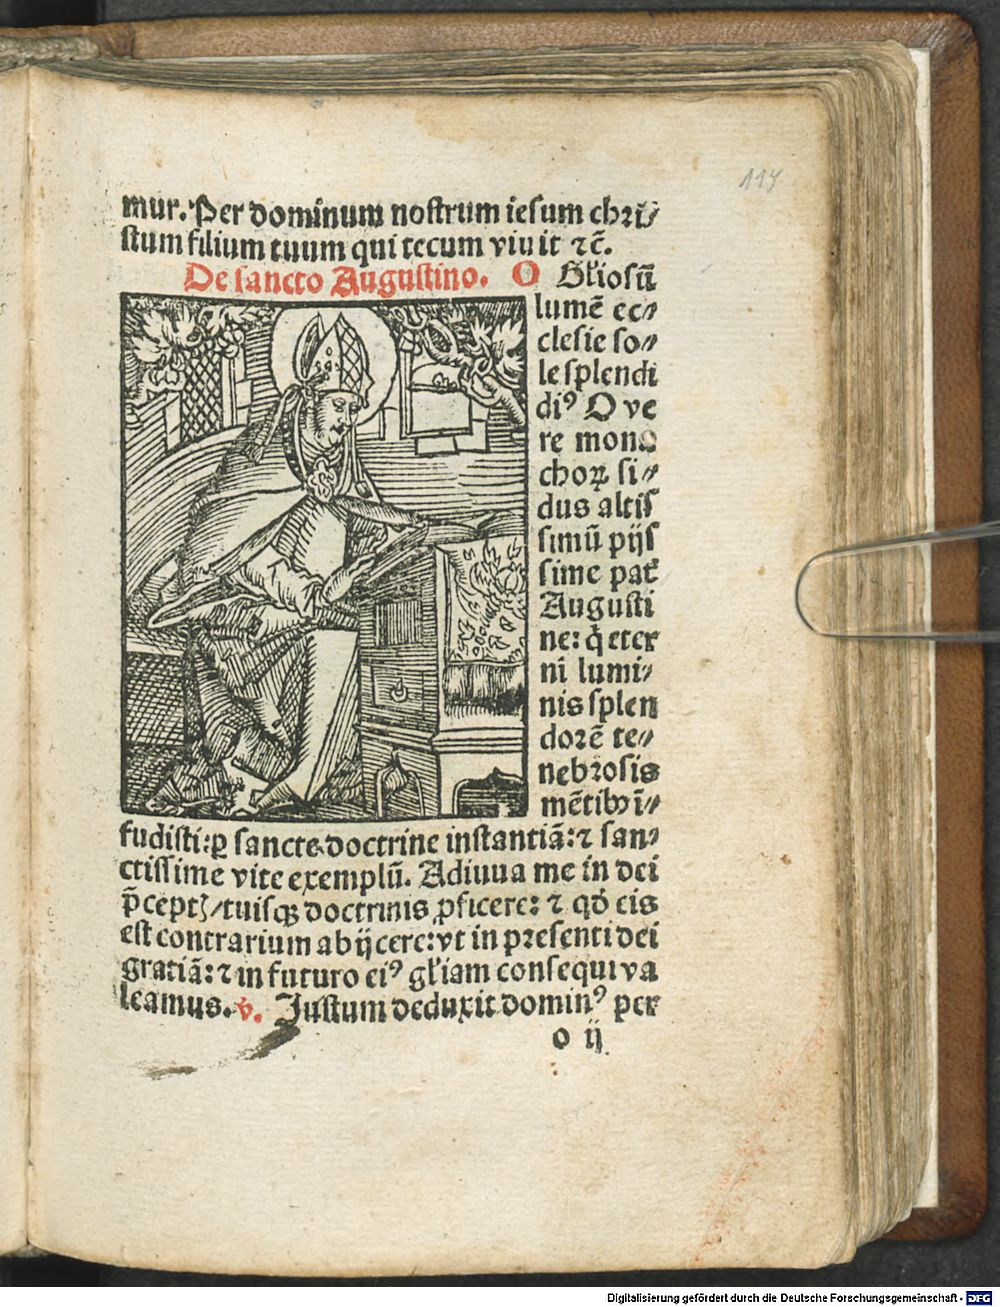 117
mur. Per dominum nostrum iesum chri⸗
stum filium tuum qui tecum viuit ⁊c̄.
De sancto Augustino. O Gl̄iosū
lumē ec⸗
clesie so⸗
le splendi
diꝰ O ve
re mona
choꝝ si⸗
dus altis
simū pijs
sime pat̄
Augusti
ne: q̇ eter
ni lumi⸗
nis splen
dorē te⸗
nebrosis
mētibꝰ ī⸗
fudisti: ꝑ sancte doctrine instantiā: ⁊ san⸗
ctissime vite exemplū. Adiuua me in dei
p̄ceptꝭ / tuisqꝫ doctrinis ꝓficere: ⁊ qḋ eis
est contrarium abijcere: vt in presenti dei
gratiā: ⁊ in futuro eiꝰ gl̄iam consequi va
leamus. v̄. Justum deduxit dominꝰ per
o ij
Digitalisierung gefördert durch die Deutsche Forschungsgemeinschaft - DFG